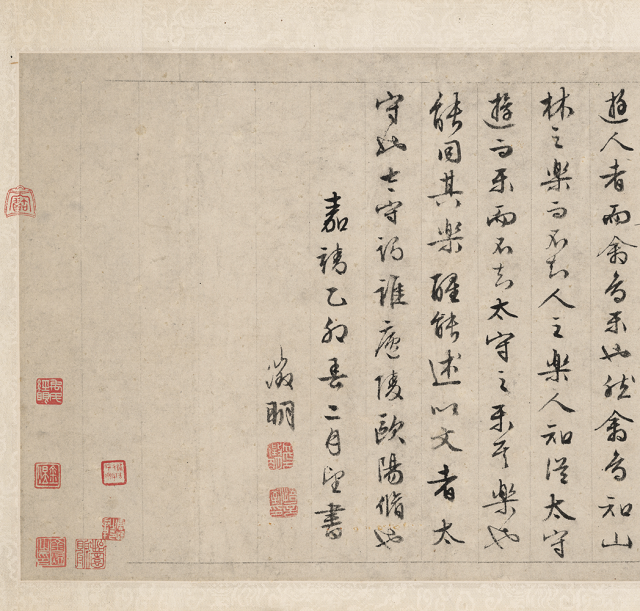 遊人者而禽鳥樂也然禽鳥知山
林之樂而不知人之樂人知從太守
遊而樂而不知太守之樂其樂也
能同其樂醒能述以文者太
守也太守謂誰廬陵歐陽脩也
嘉靖乙卯春二月望書
徵明